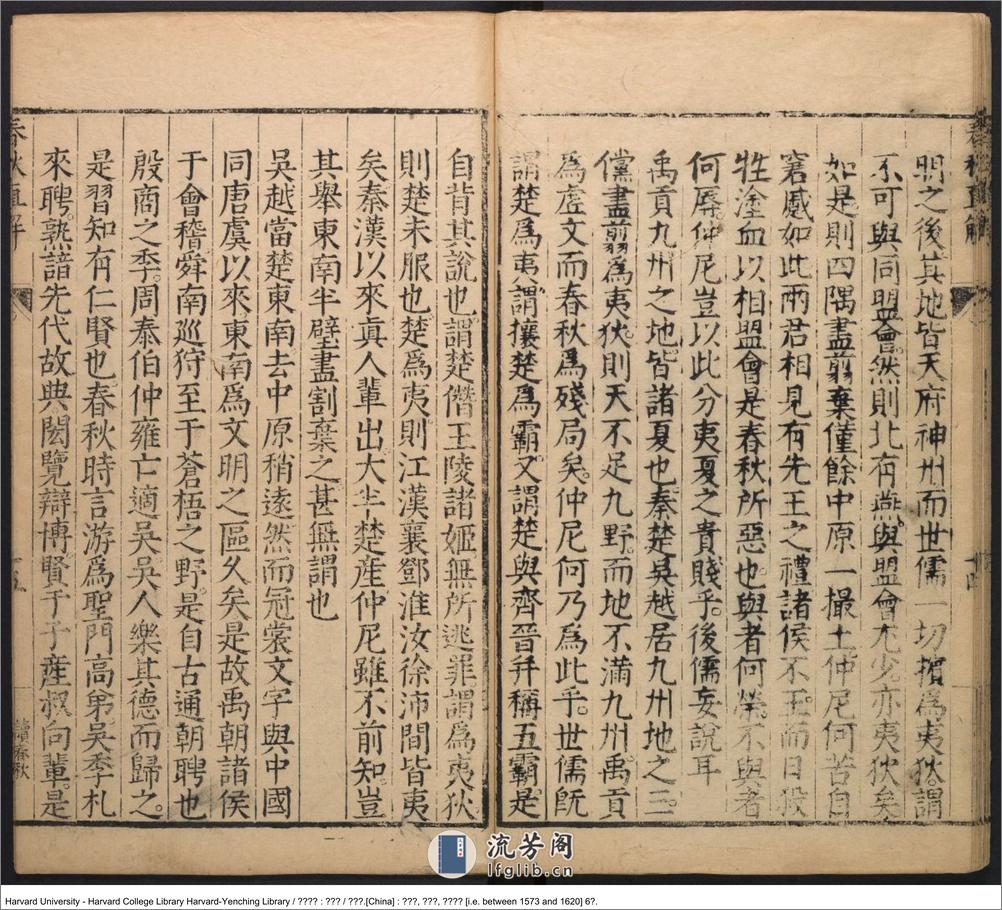 春秋直解
明之後其地皆天府神州而世儒一切擯爲夷狄謂
不可與同盟會然則北有燕與盟會尤少亦夷狄矣
如是則四隅盡翦棄僅餘中原一撮土仲尼何苦自
窘蹙如此兩君相見有先王之禮諸侯不王而日殺
牲塗血以相盟會是春秋所惡也與者何榮不與者
何辱仲尼豈以此分夷夏之貴賤乎後儒妄說耳
禹貢九州之地皆諸夏也秦楚吳越居九州地之三
儻盡翦爲夷狄則天不足九野而地不滿九州禹貢
爲虛文而春秋爲殘局矣仲尼何乃爲此乎世儒旣
謂楚爲夷謂攘楚爲霸又謂楚與齊晉幷稱五霸是
十四
自背其說也謂楚僭王陵諸姬無所逃罪謂爲夷狄
則楚未服也楚爲夷則江漢襄鄧淮汝徐沛間皆夷
矣秦漢以來眞人輩出大半楚産仲尼雖不前知豈
其舉東南半壁盡割棄之甚無謂也
吳越當楚東南去中原稍遠然而冠裳文字與中國
同唐虞以來東南爲文明之區久矣是故禹朝諸侯
于會稽舜南巡狩至于蒼梧之野是自古通朝聘也
殷商之季周泰伯仲雍亡適吳吳人樂其德而歸之
是習知有仁賢也春秋時言游爲聖門高弟吳季札
來聘熟諳先代故典閎覽辯博賢于子産叔向輩是
春秋直解
十五
讀春秋
流芳阁
lfglib.cn
Harvard University - Harvard College Library Harvard-Yenching Library / ???? : ??? / ???.[China] : ???, ???, ???? [i.e. between 1573 and 1620] 6?.